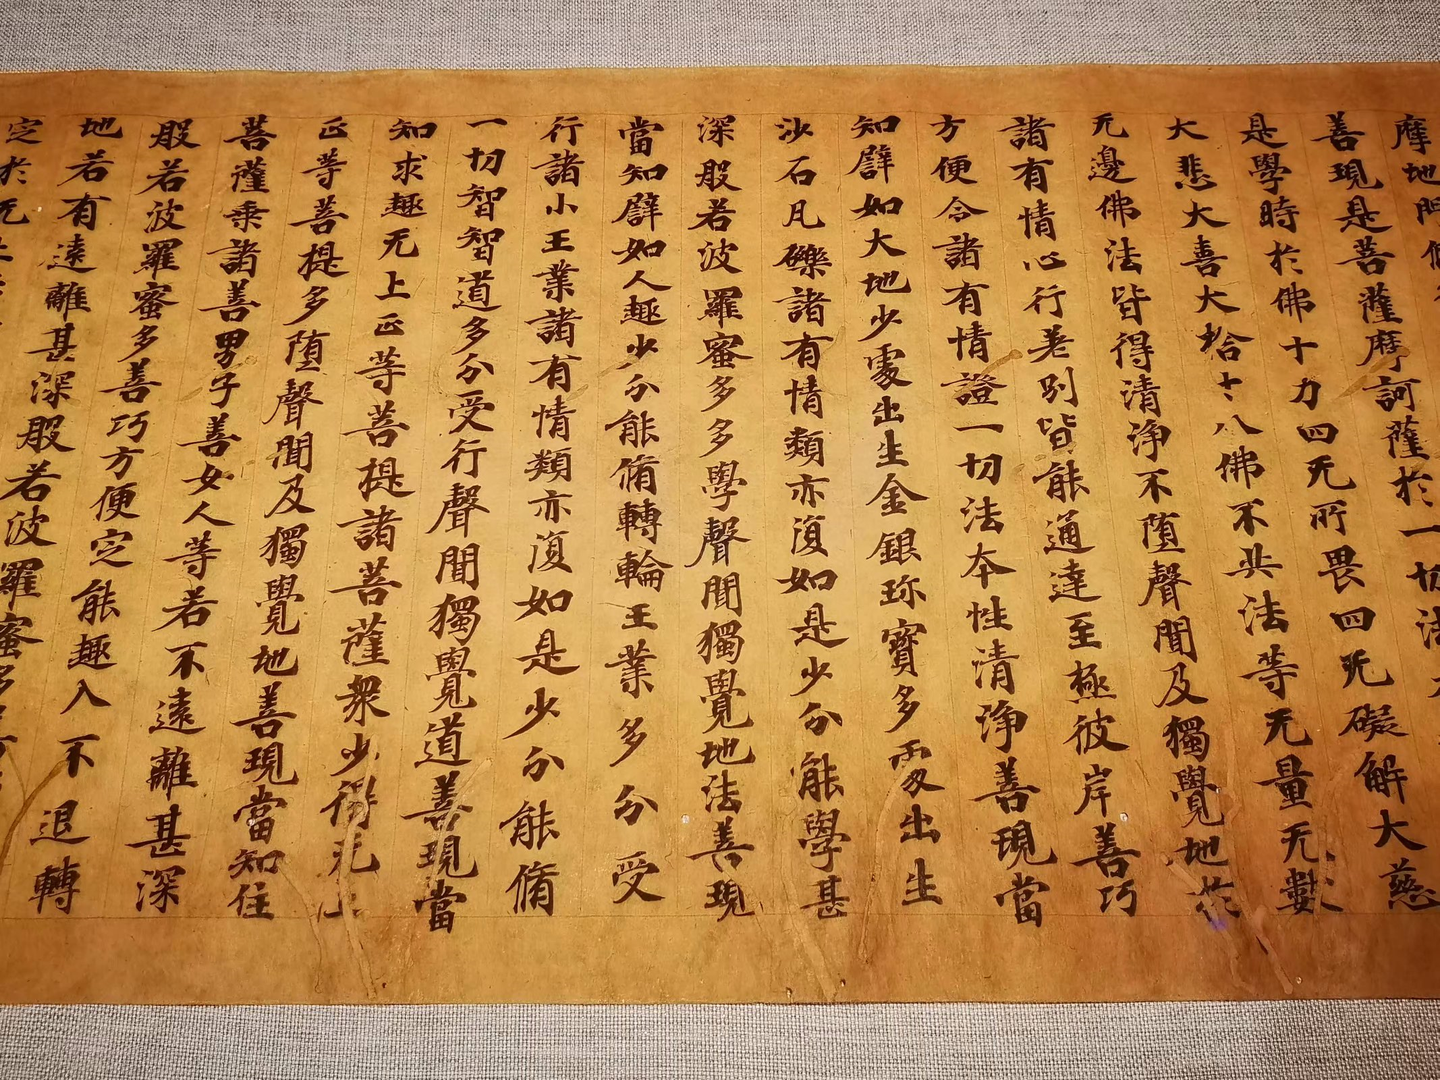 摩地門
善現是菩薩摩訶薩於一切法
是學時於佛十力四无所畏四无礙解大慈
大悲大喜大捨十八佛不共法等无量无數
无邊佛法皆得清淨不堕聲聞及獨覺地於
諸有情心行差別皆能通達至極彼岸善巧
方便令諸有情證一切法本性清淨善現當
知譬如大地少處出生金銀珎寶多處出生
沙石凡礫諸有情類亦復如是少分能學甚
深般若波羅蜜多多學聲聞獨覺地法善現
當知譬如人趣少分能脩轉輪王業多分受
行諸小王業諸有情類亦復如是少分能脩
一切智智道多分受行聲聞獨覺道善現當
知求趣无上正等菩提諸菩薩衆少得无上
正等菩提多堕聲聞及獨覺地善現當知住
菩薩乘諸善男子善女人等若不遠離甚深
般若波羅蜜多善巧方便定能趣入不退轉
地若有遠離甚深般若波羅蜜多
定於无